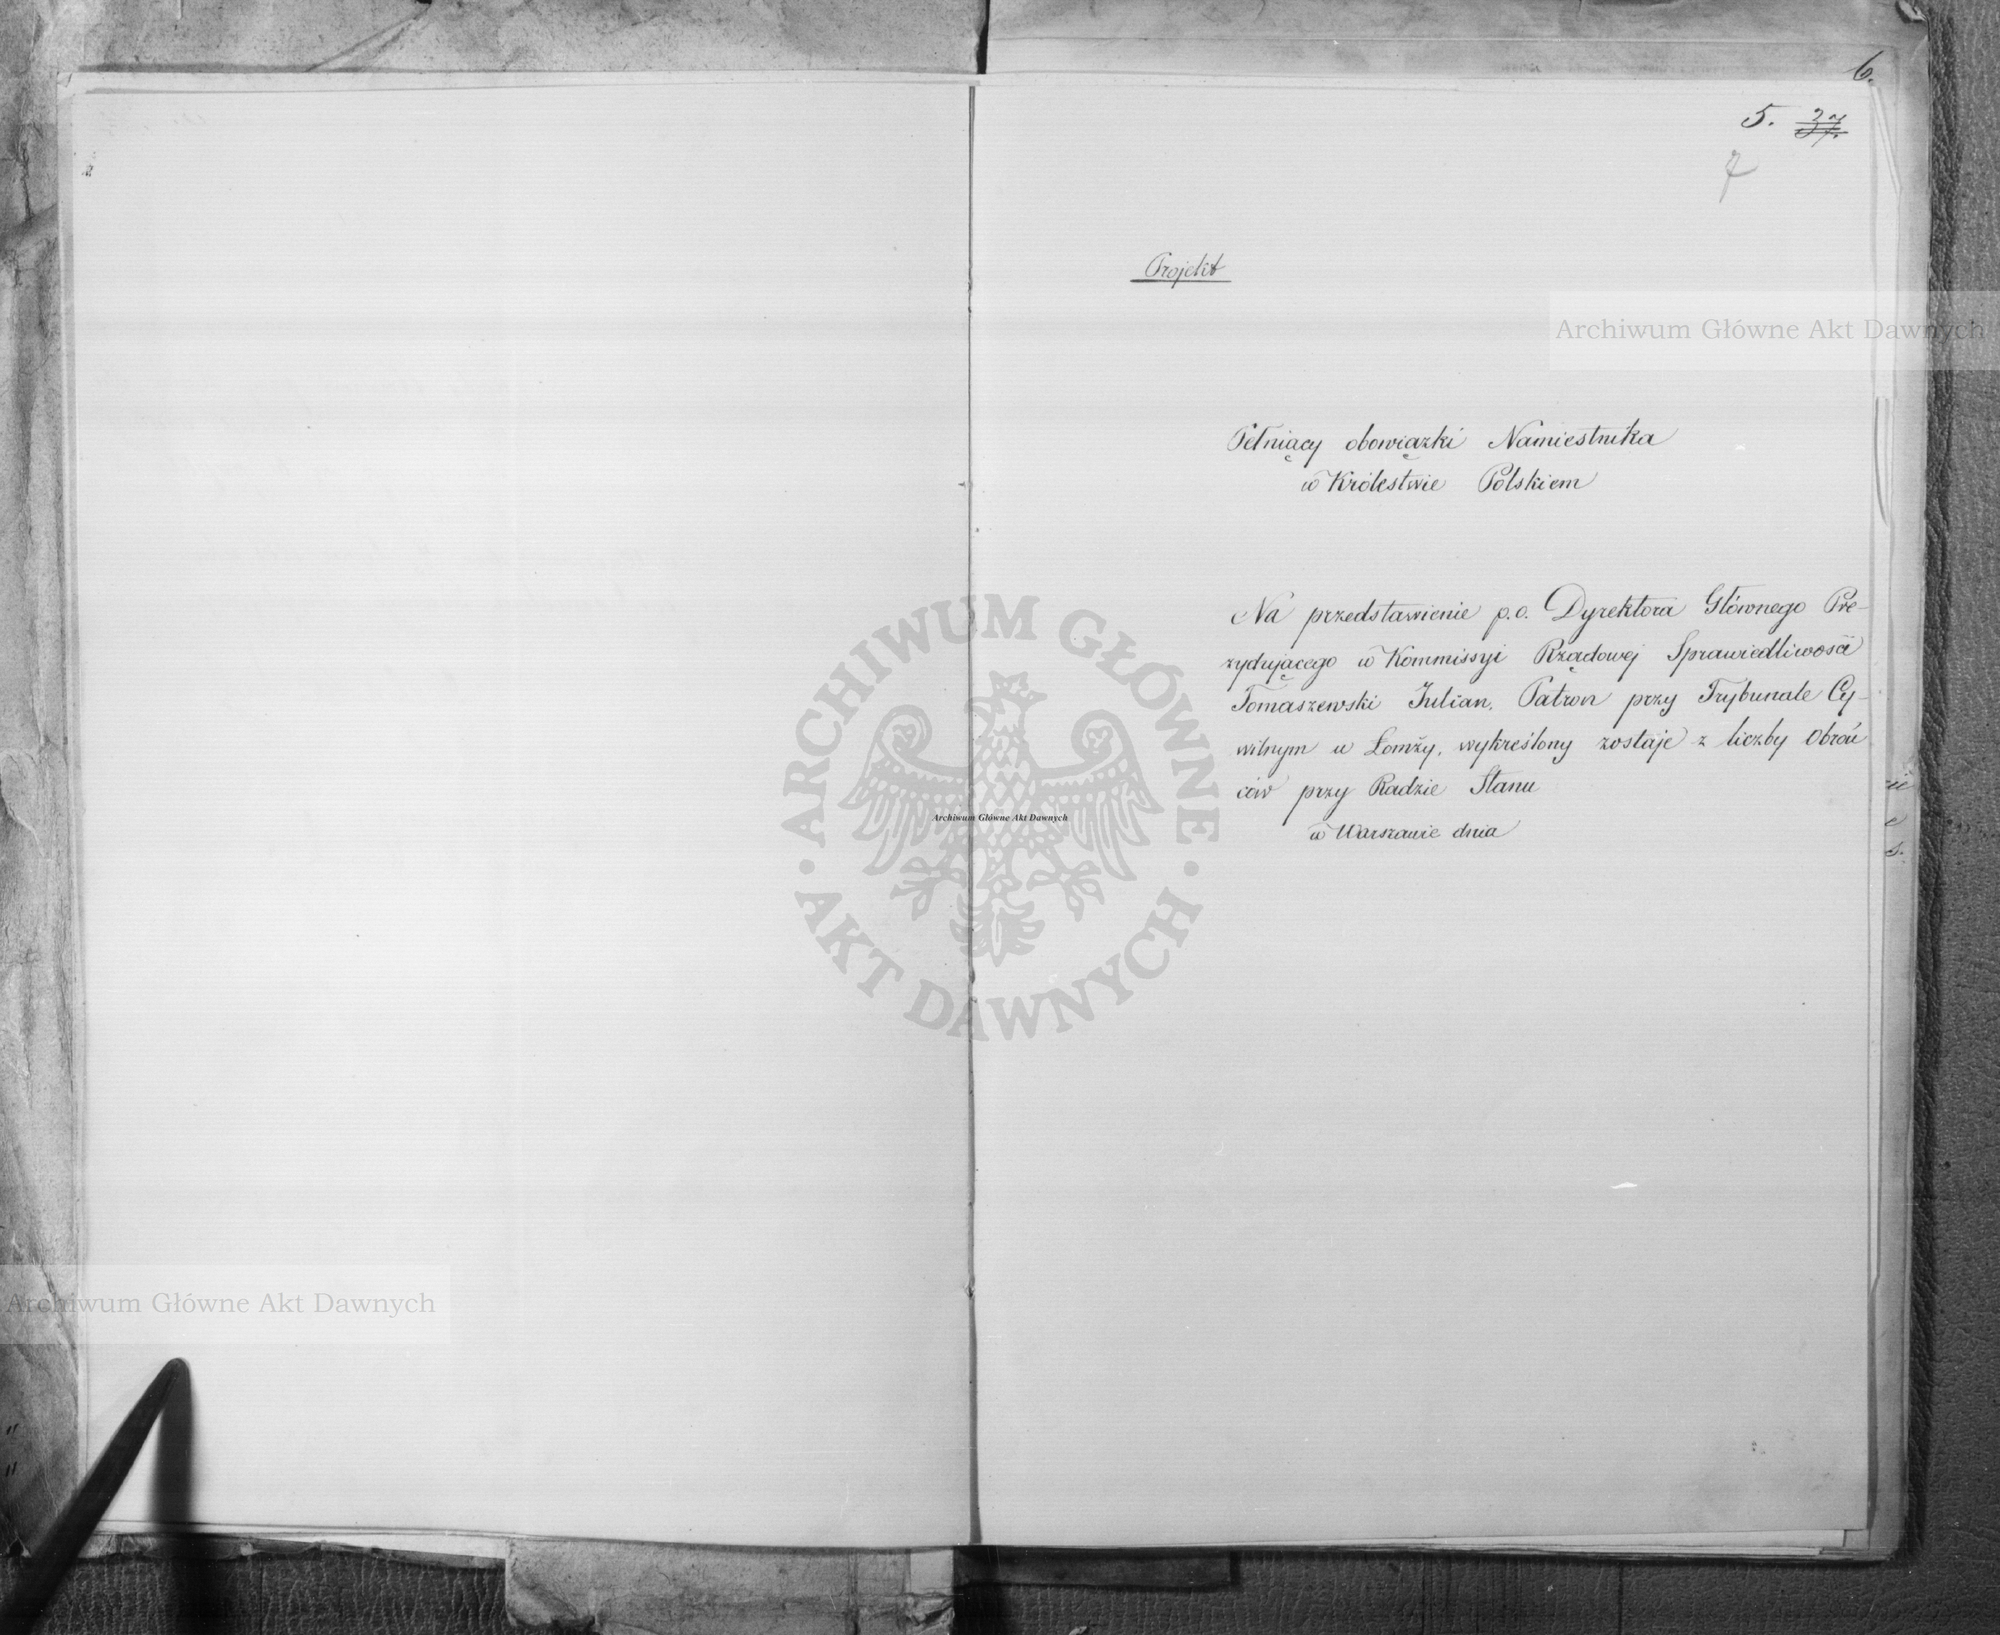 6.
5. 37.
7
Projekt
Archiwum Główne Akt Dawnych
Pełniący obowiązki Namiestnika
w Królestwie Polskiem
Na przedstawienie p.o. Dyrektora Głównego Pre-
zydującego w Kommissyi Rządowej Sprawiedliwości
Tomaszewski Julian, Patron przy Trybunale Cy-
wilnym w Łomży, wykreślony zostaje z liczby Obroń
ców przy Radzie Stanu
w Warszawie dnia
ARCHIWUM GŁÓWNE
AKT DAWNYCH
Archiwum Główne Akt Dawnych
Archiwum Główne Akt Dawnych